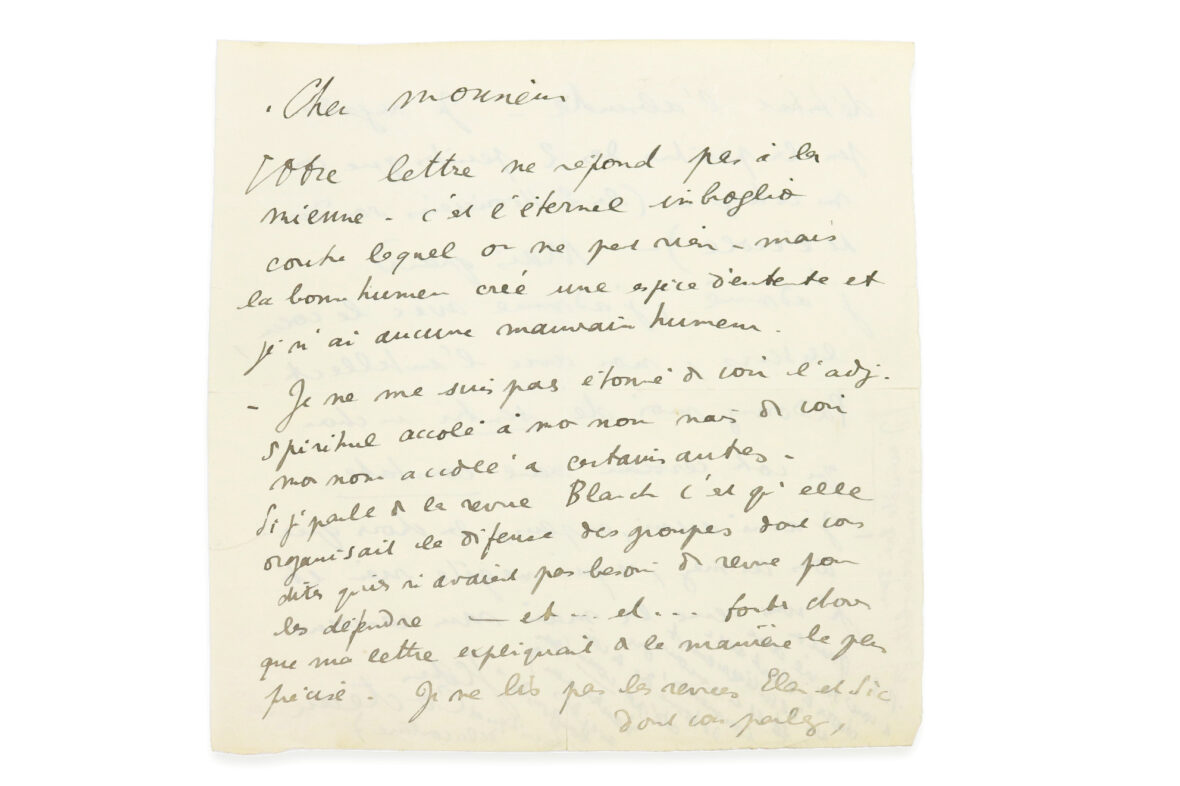 Cher monsieur
Votre lettre ne répond pas à la
mienne - c'est l'éternel imbroglio
contre lequel on ne peut rien - mais
la bonne humeur créé une espèce d'entente et
je n'ai aucune mauvaise humeur.
- Je ne me suis pas étonné de voir l'adj.
spirituel accolé à mon nom mais de voir
mon nom accolé à certains autres -
Si j'parle de la revue Blanche c'est qu'elle
organisait la défense des groupes dont vous
dites qu'ils n'avaient pas besoin de revue pour
les défendre — et .. et ... toutes choses
que ma lettre expliquait de la manière la plus
précise - Je ne lis pas les revues Elan et Sic
dont vous parlez,